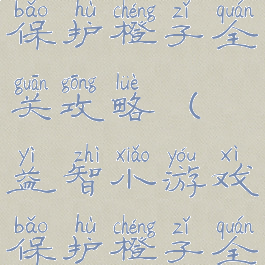 bǎo hù chéng zǐ quán
保护橙子全
guān gōng lüè
关攻略（
yì zhì xiǎo yóu xì
益智小游戏
bǎo hù chéng zǐ quán
保护橙子全